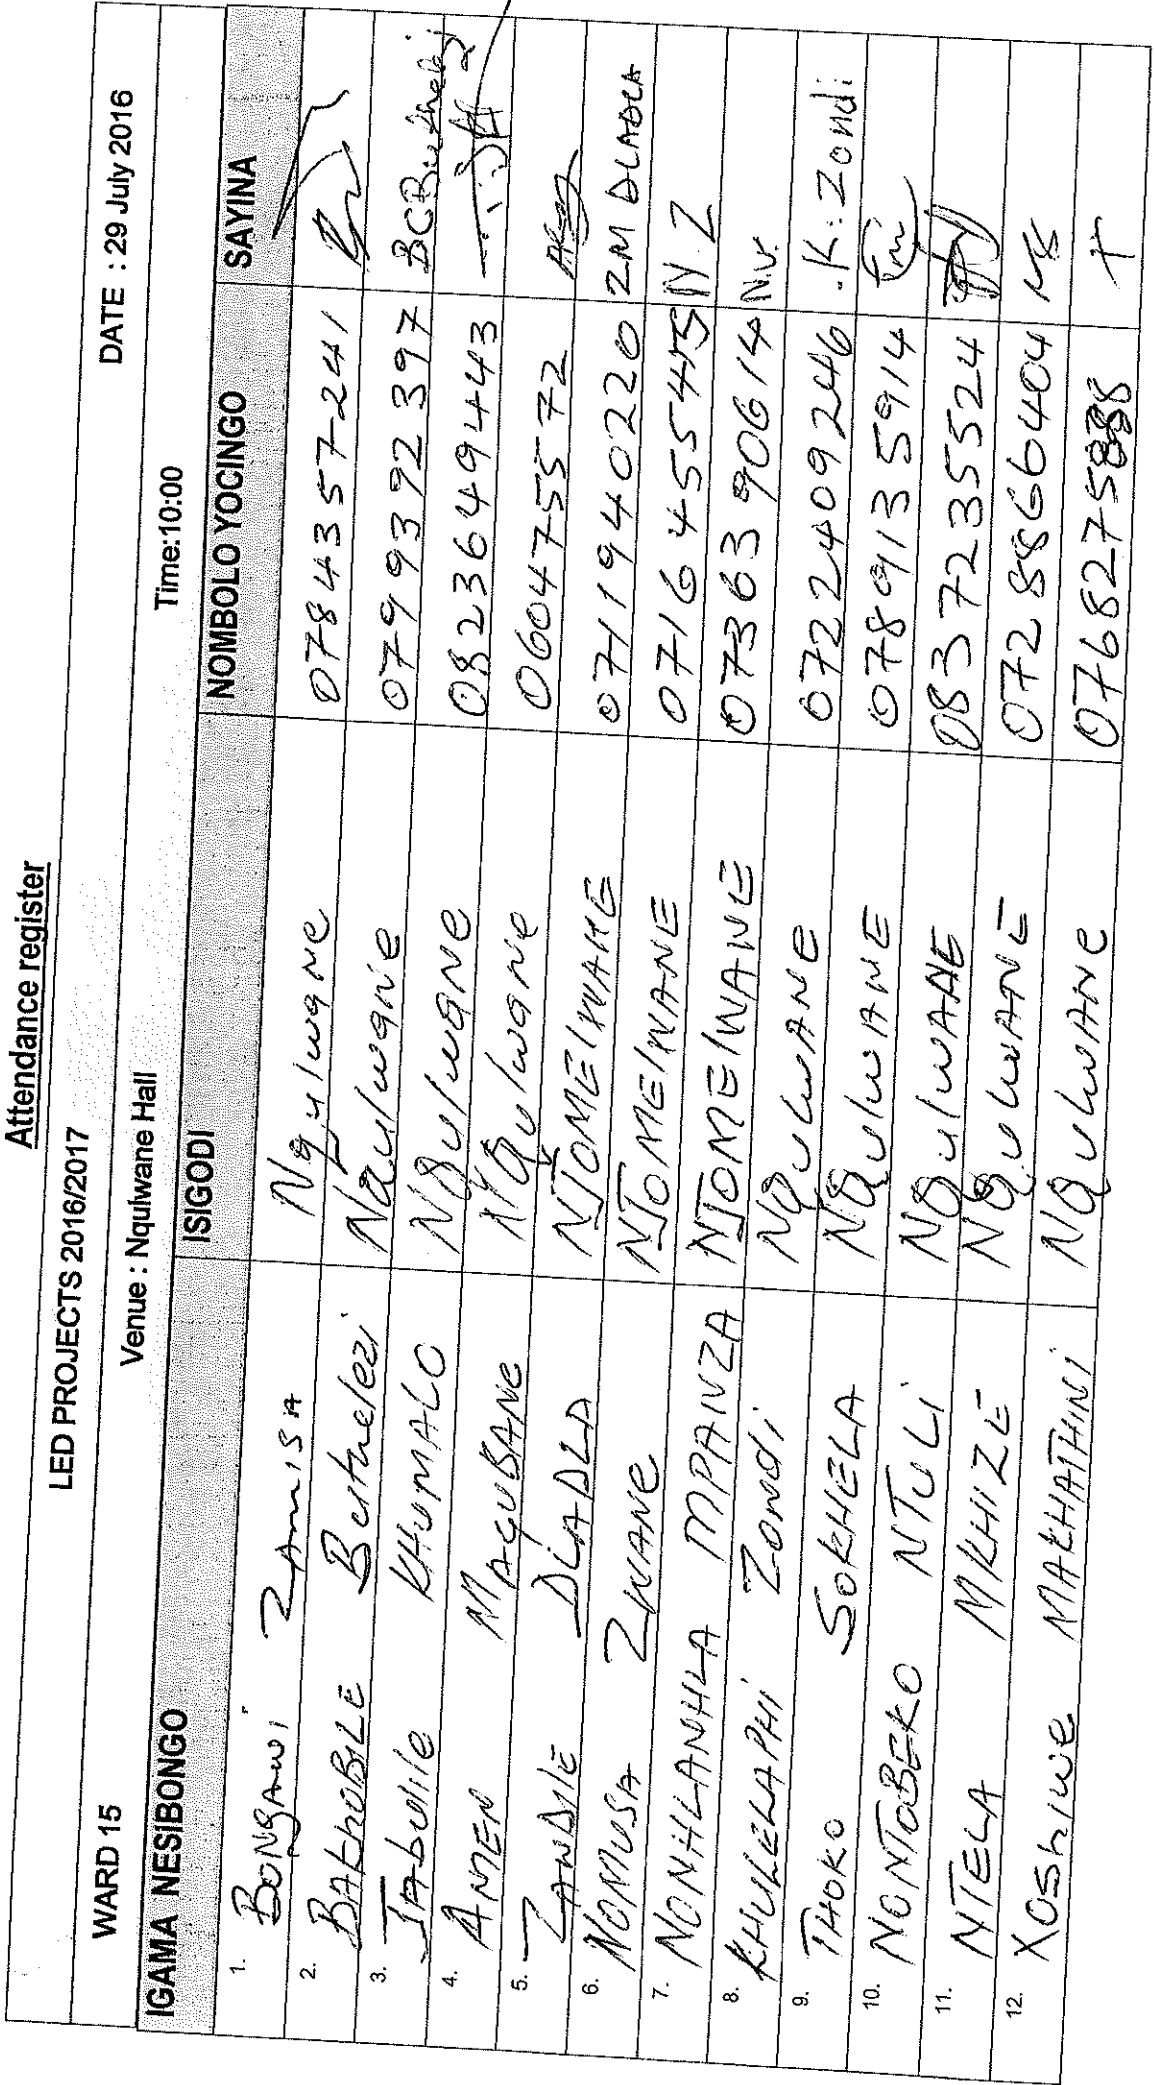 Attendance register
LED PROJECTS 2016/2017
WARD 15 Venue : Nqulwane Hall Time:10:00 DATE : 29 July 2016
IGAMA NESIBONGO ISIGODI NOMBOLO YOCINGO SAYINA
1. BONGANI ZAMISA Nqulwane 0784357241
2. BAKHOBILE Buthelezi Nqulwane 0799392397 BCButhelezi
3. JABULILE KHUMALO Nqulwane 0823649443
4. AMEN MAGUBANE Nqulwane 060475572
5. ZANDILE DLADLA NJOMELWANE 0719940220 ZM DLADLA
6. NOMUSA ZWANE NJOMELWANE 0716455445 N.Z
7. NONHLANHLA MPANZA NJOMELWANE 0736390614 N.V.
8. KHULELAPHI Zondi NQULWANE 0722409246 .K. Zondi
9. THOKO SOKHELA NQULWANE 0789135914
10. NONTOBEKO NTULI NQULWANE 0837235524
11. NTELA MKHIZE NQULWANE 0728866404
12. Xoshiwe MAKHATHINI NQULWANE